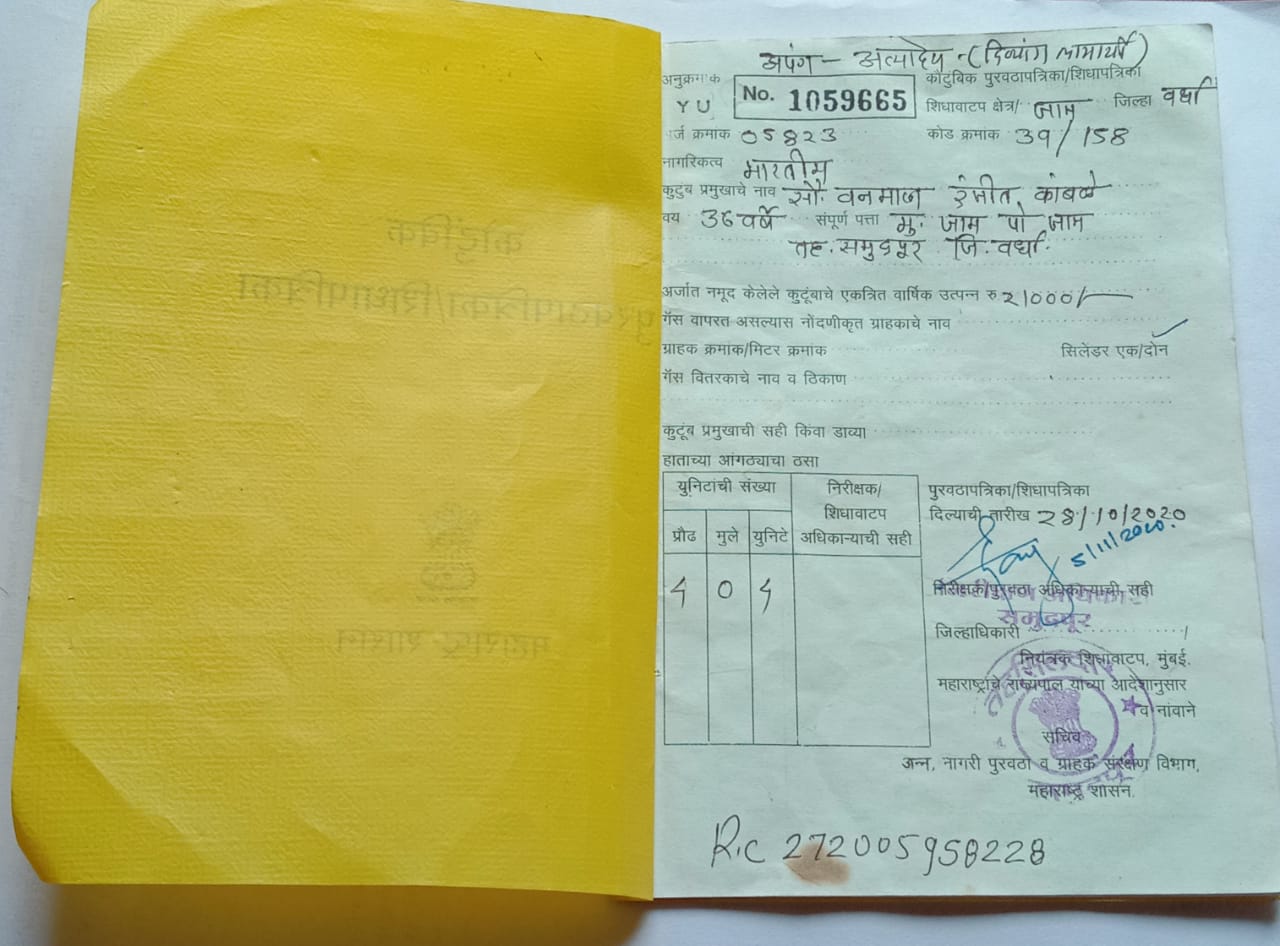 अपंग - अंत्योदय - (दिव्यांग लाभार्थी)
अनुक्रमांक
कौटुंबिक पुरवठापत्रिका/शिधापत्रिका
YU No. 1059665
शिधावाटप क्षेत्र/ जाम जिल्हा वर्धा
र्ज क्रमांक 05823 कोड क्रमांक 39/158
नागरिकत्व भारतीय
कुटुंब प्रमुखाचे नाव सौ. वनमाला रंजीत कांबळे
वय 36 वर्षे संपूर्ण पत्ता मु. जाम पो जाम
तह. समुद्रपूर जि. वर्धा.
अर्जात नमूद केलेले कुटूंबाचे एकत्रित वार्षिक उत्पन्न रु 21000/-
गॅस वापरत असल्यास नोंदणीकृत ग्राहकाचे नाव
ग्राहक क्रमांक/मिटर क्रमांक सिलेंडर एक/दोन
गॅस वितरकाचे नाव व ठिकाण
कुटूंब प्रमुखाची सही किंवा डाव्या
हाताच्या आंगठ्याचा ठसा
युनिटांची संख्या
निरीक्षक/
शिधावाटप
अधिकाऱ्याची सही
प्रौढ मुले युनिटे
4 0 4
पुरवठापत्रिका/शिधापत्रिका
दिल्याची तारीख 28/10/2020
5/11/2020.
निरीक्षक/पुरवठा अधिकाऱ्याची सही
समुद्रपूर
जिल्हाधिकारी
नियंत्रक शिधावाटप, मुंबई.
महाराष्ट्राचे राज्यपाल यांच्या आदेशानुसार
व नांवाने
सचिव
अन्न, नागरी पुरवठा व ग्राहक संरक्षण विभाग,
महाराष्ट्र शासन.
तहसिलदार
R.C 272005958228
कौटुंबिक
पुरवठापत्रिका/शिधापत्रिका
महाराष्ट्र शासन